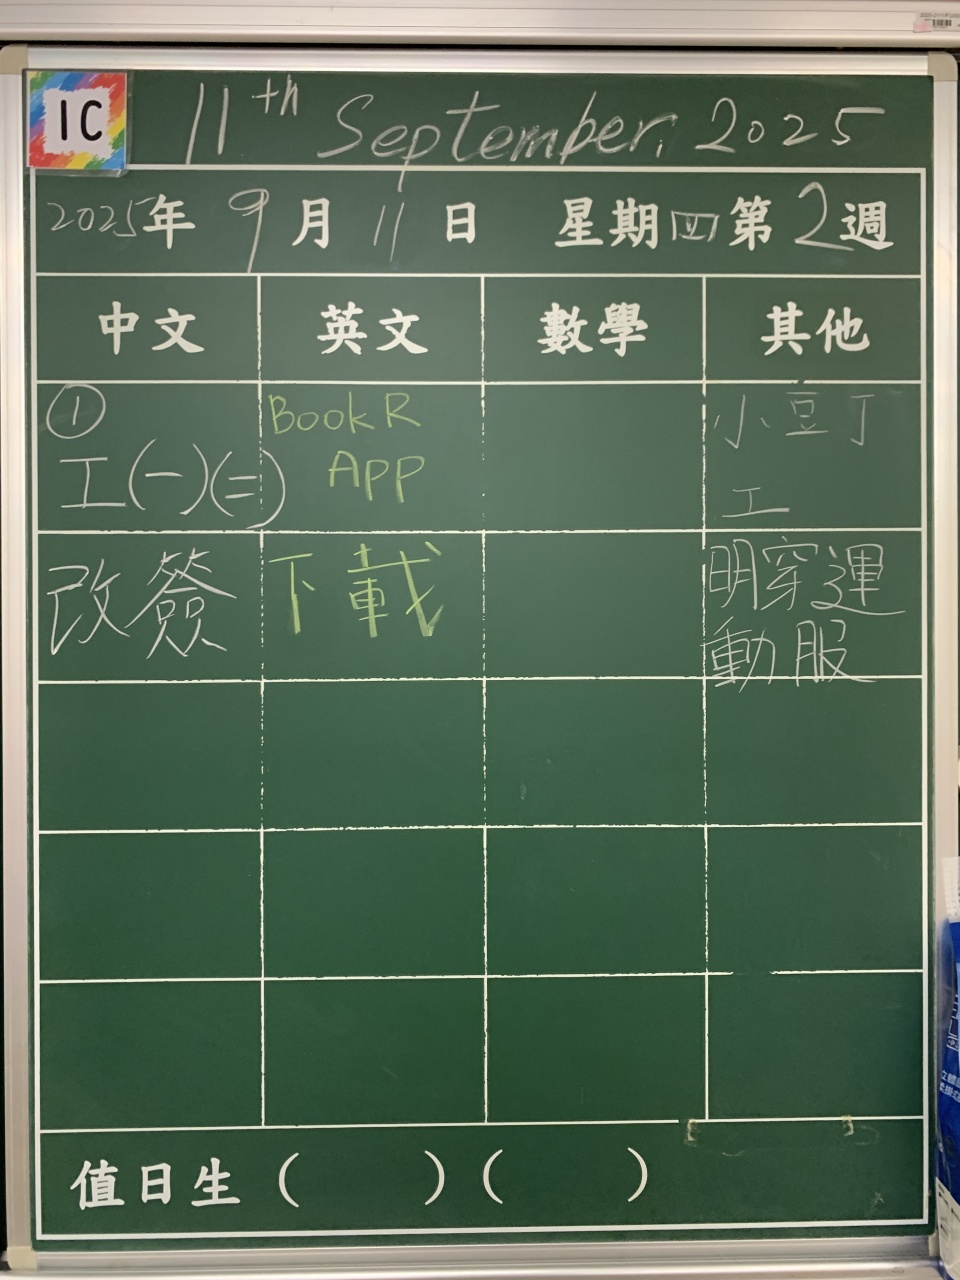 1C
11th September, 2025
2025年 9月 11日 星期四 第2週
中文 英文 數學 其他
①
工(一)(二)
BookR
App
小豆丁
工
改簽
下載
明穿運
動服
值日生 ( ) ( )